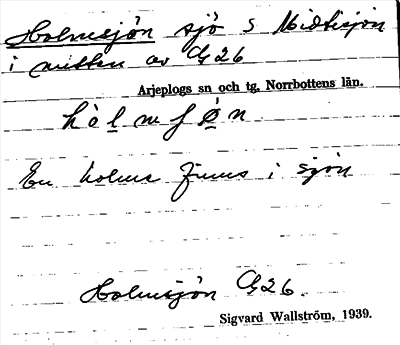 Holmsjön sjö S Mistisjön
i mitten av G26
Arjeplogs sn och tg. Norrbottens län.
En holme finns i sjön
Holmsjön G26.
Sigvard Wallström, 1939.